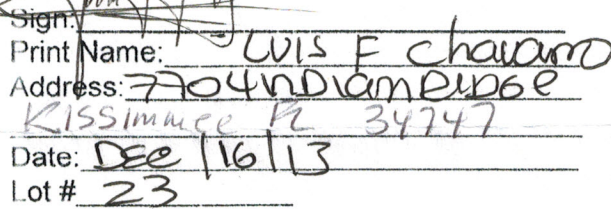 Sign:
Print Name: LUIS F Chavarro
Address: 7704 INDIAN RIDGE
Kissimmee FL 34747
Date: DEC/16/13
Lot # 23